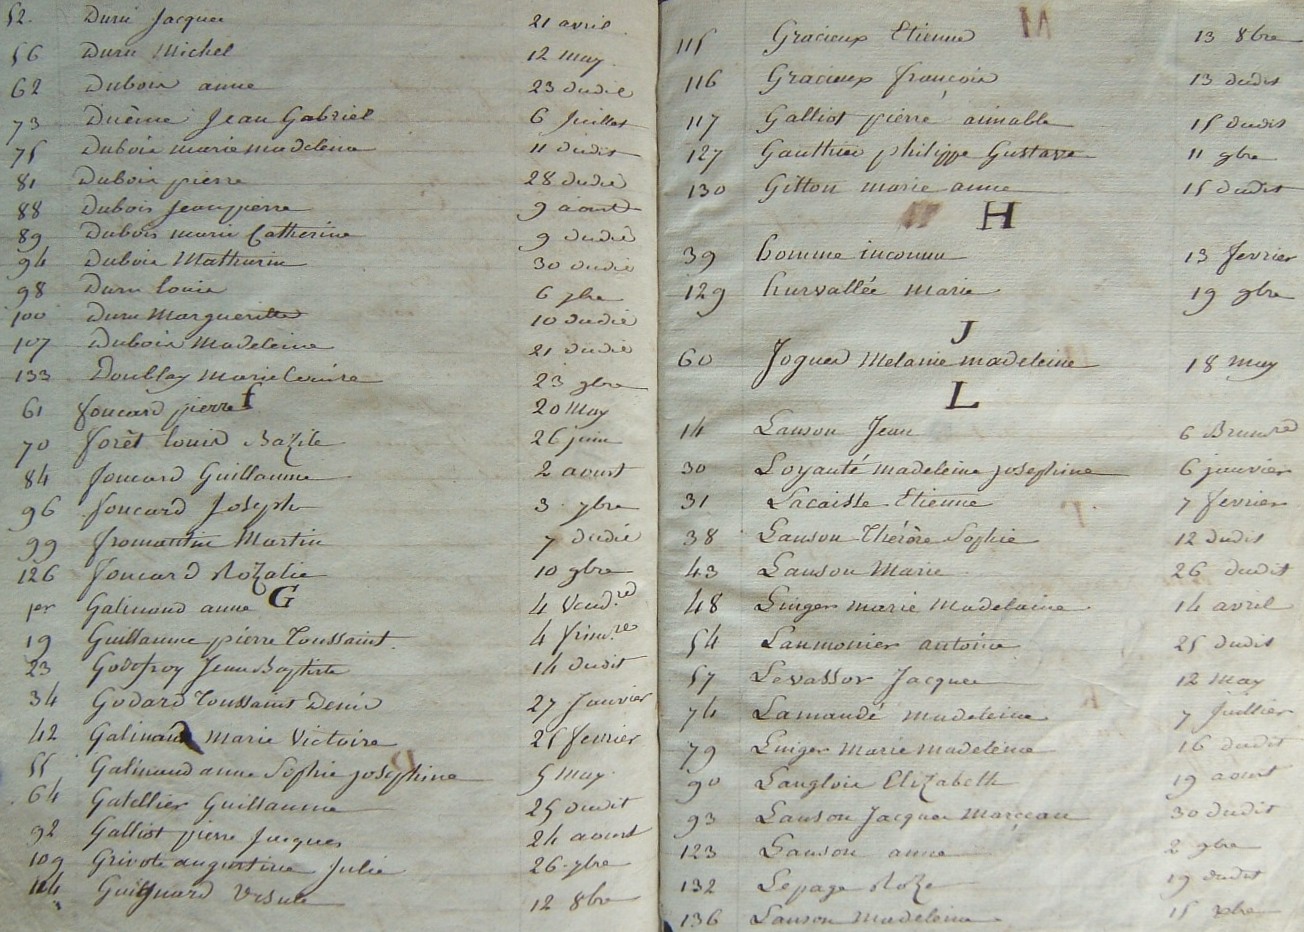 52 Duru Jacques 21 avril
56 Duru Michel 12 may
62 Dubois anne 23 dudit
73 Jean Gabriel 6 Juillet
75 Dubois marie madeleine 11 dudit
81 Dubois pierre 28 dudit
88 Dubois Jean pierre 9 aoust
89 Dubois marie Catherine 9 dudit
94 Dubois Mathurin 30 dudit
98 Duru louis 6 7bre
100 Duru Marguerite 10 dudit
107 Dubois Madeleine 21 dudit
133 Doublay Marie Louise 23 9bre
f
61 foucard pierre 20 May
70 forêt louis Bazile 26 juin
84 foucard Guillaume 2 aoust
96 foucard Joseph 3 7bre
99 fromantin Martin 7 dudit
126 foucard Rozalie 10 9bre
G
1er Galinaud anne 4 Vend.re
19 Guillaume pierre Toussaint 4 frim.re
23 Godefroy Jean Baptiste 14 dudit
34 Godard Toussaint Denis 27 Janvier
42 Galinaud Marie Victoire 25 fevrier
55 Galinaud anne Sophie josephine 5 may
64 Gatellier Guillaume 25 dudit
92 Galliot pierre Jacques 24 aoust
109 Grivote augustine Julie 26 7bre
114 Guignard Ursule 12 8bre
115 Gracieux Etienne 13 8bre
116 Gracieux françois 13 dudit
117 Galliot pierre aimable 15 dudit
127 Gauthier philippe Gustave 11 9bre
130 Gitton marie anne 15 dudit
H
39 homme inconnu 13 fevrier
129 hurvallée marie 19 9bre
J
60 Jogues Melanie madeleine 18 may
L
14 Lanson Jean 6 Brum.re
30 Loyauté madeleine josephine 6 janvier
31 Lacaille Etienne 7 fevrier
38 Lanson Thérèse Sophie 12 dudit
43 Lanson Marie 26 dudit
48 Linger marie Madelaine 14 avril
54 Laumonier antoine 25 dudit
57 Levassor Jacques 12 may
74 Lamandé madeleine 7 Juillier
79 Linger Marie madeleine 16 dudit
90 Langlois Elizabeth 19 aoust
93 Lanson Jacques Marceau 30 dudit
123 Lanson anne 2 9bre
132 Lepage Roze 19 dudit
136 Lanson Madeleine 15 xbre